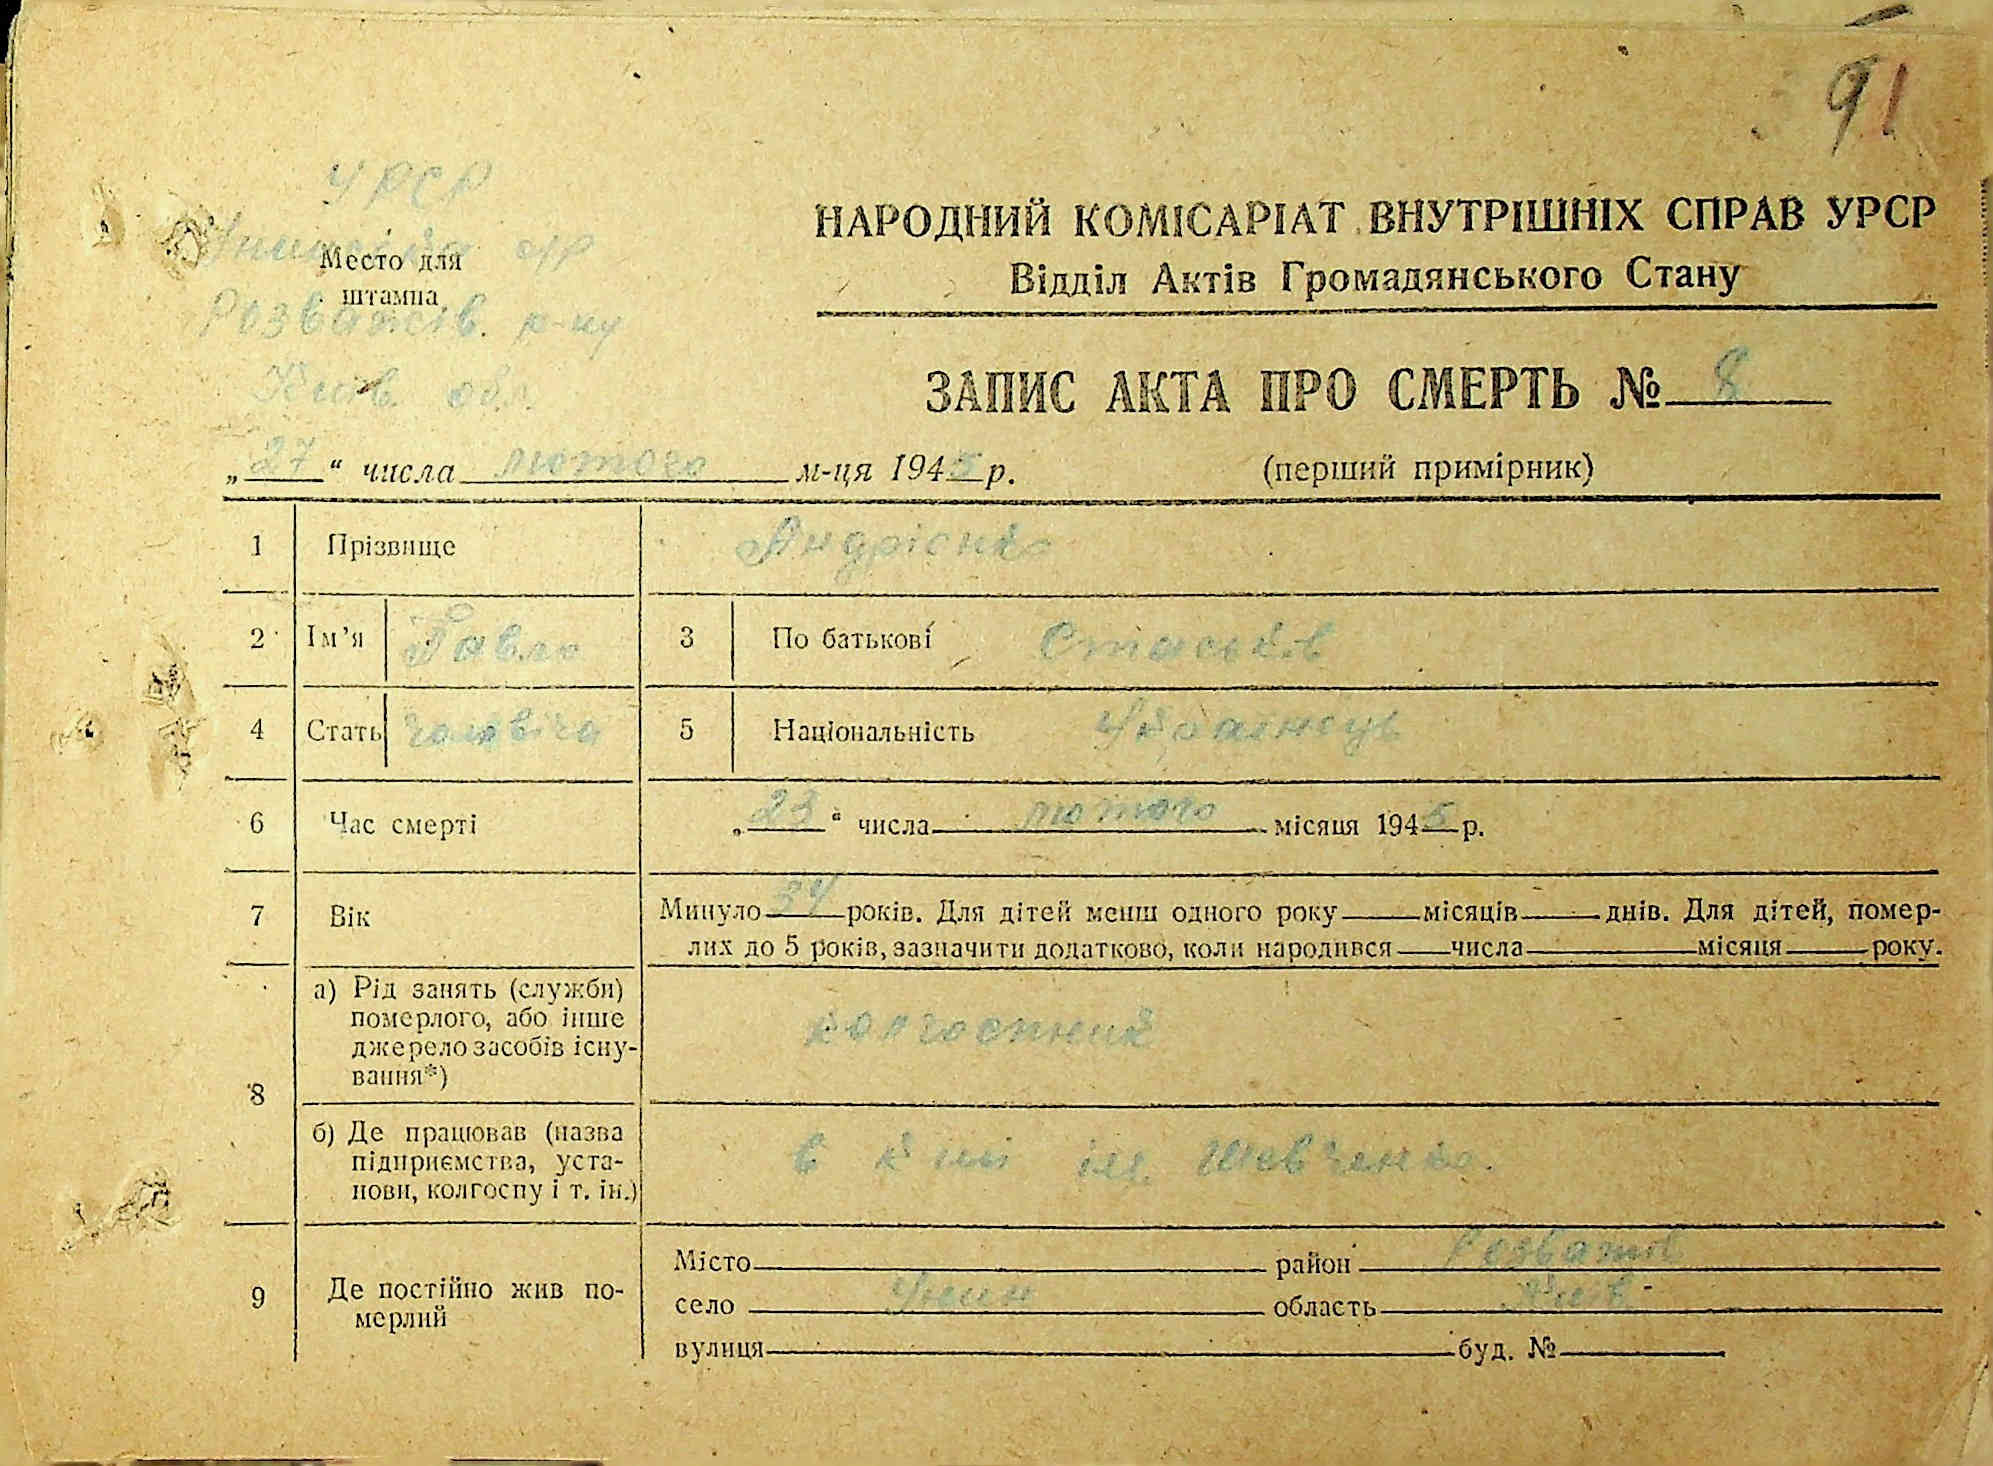 91
УРСР
Унинська с/р
Место для
штампа
Розважів. р-ну
Київ. обл.
НАРОДНИЙ КОМІСАРІАТ ВНУТРІШНІХ СПРАВ УРСР
Відділ Актів Громадянського Стану
ЗАПИС АКТА ПРО СМЕРТЬ № 8
„27“ числа лютого м-ця 1945 р.
(перший примірник)
1 Прізвище Андрієнко
2 Ім’я Павло 3 По батькові Стаськів
4 Стать чоловіча 5 Національність Українець
6 Час смерті „23“ числа лютого місяця 1945 р.
7 Вік Минуло 34 років. Для дітей менш одного року місяців днів. Для дітей, помер-
лих до 5 років, зазначити додатково, коли народився числа місяця року.
8
а) Рід занять (служби)
померлого, або інше
джерело засобів існу-
вання*)
колгоспник
б) Де працював (назва
підприємства, уста-
нови, колгоспу і т. ін.)
в к-пі ім. Шевченко.
9 Де постійно жив по-
мерлий
Місто район Розважів
село Унин область Київ-
вулиця буд. №